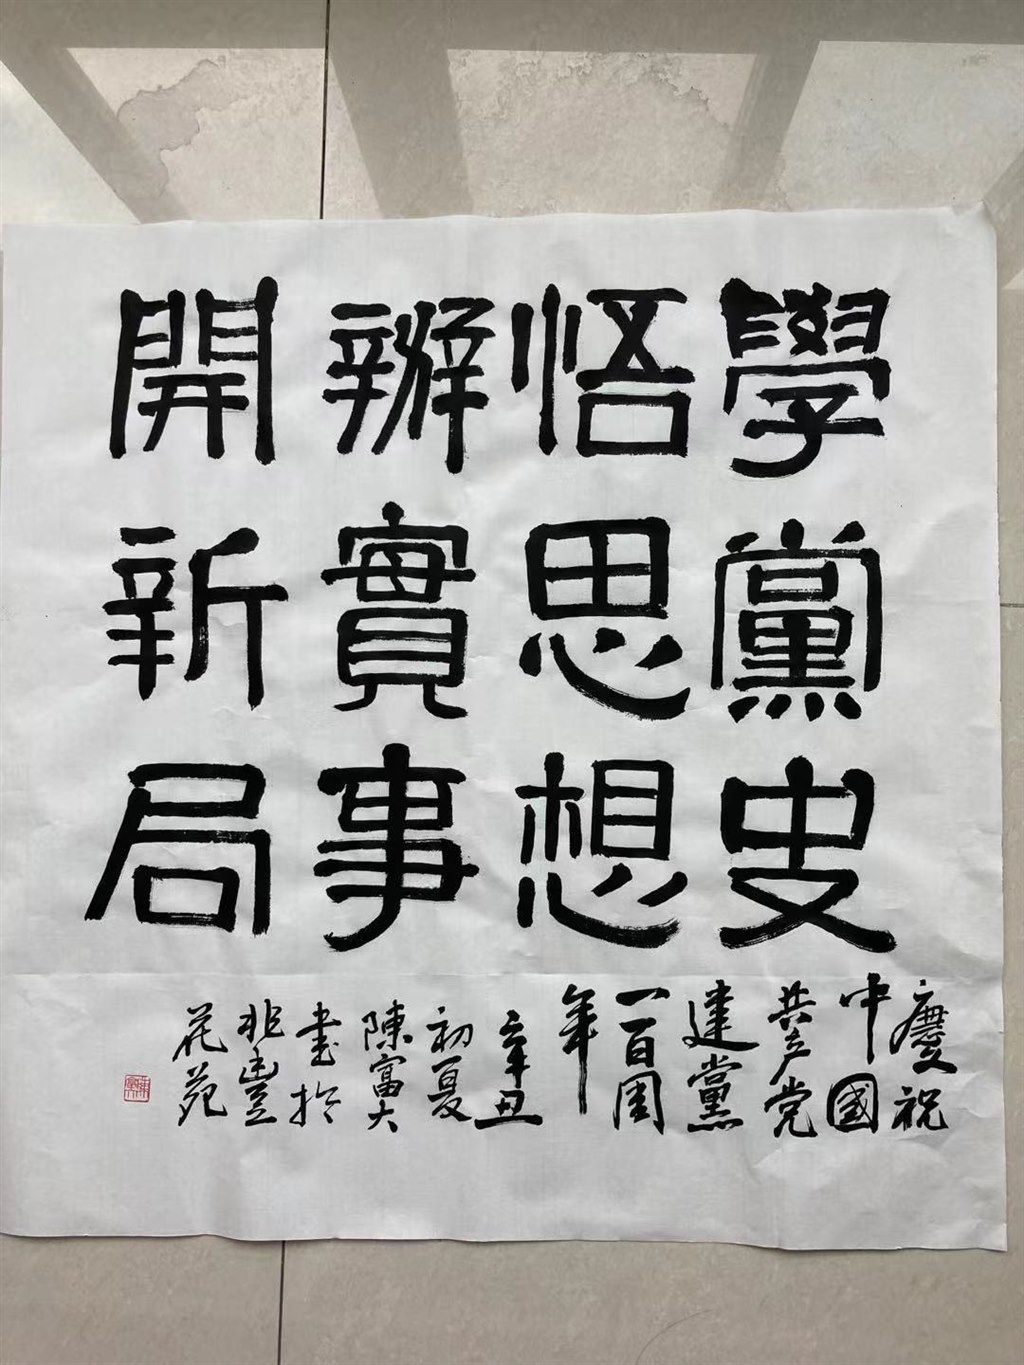 學黨史
悟思想
辦實事
開新局
慶祝
中國
共产党
建黨
一百周
年
辛丑
初夏
陳富大
書於
兆豐
花苑